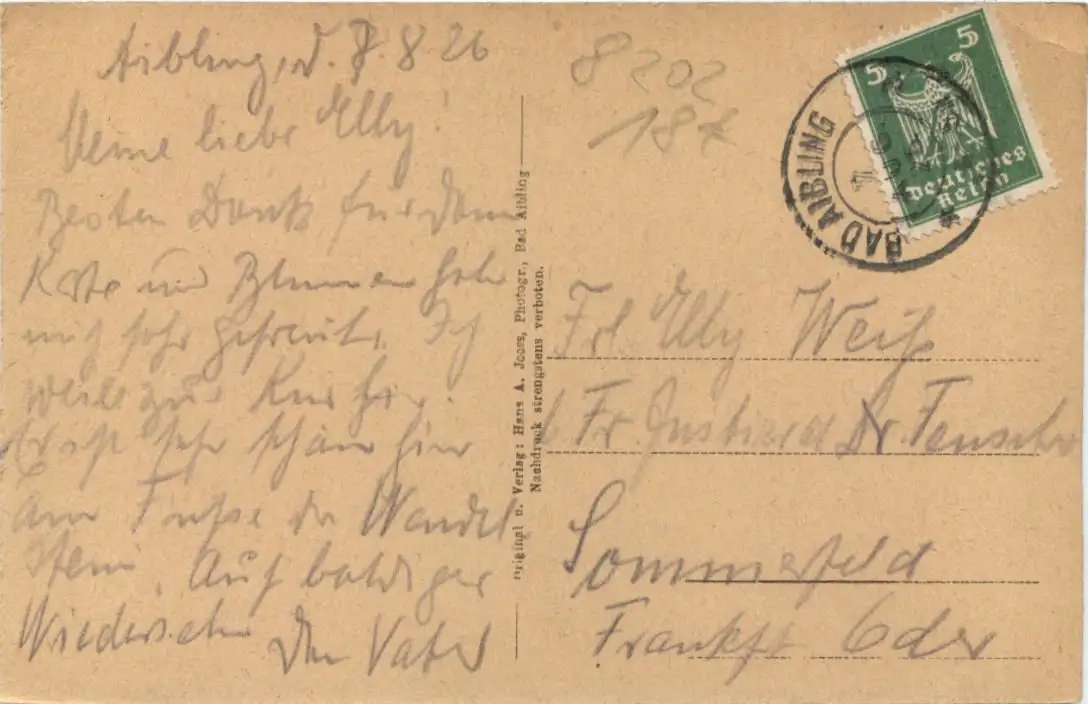 Aibling, d. 7. 8. 26
Meine liebe Elly!
Besten Dank für Deine
Karte und Blumen habe
mich sehr gefreut. Ich
weile zur Kur hier.
Es ist sehr schön hier
am Fuße des Wendel
stein. Auf baldiges
Wiedersehen
Dein Vater
Original u. Verlag: Hans A. Jooss, Photogr., Bad Aibling
Nachdruck strengstens verboten.
8202
18x
5 5
Deutsches
Reich
BAD AIBLING
Frl Elly Weiß
Fr. Justizrat Dr.
Sommerfeld
Frankft Oder